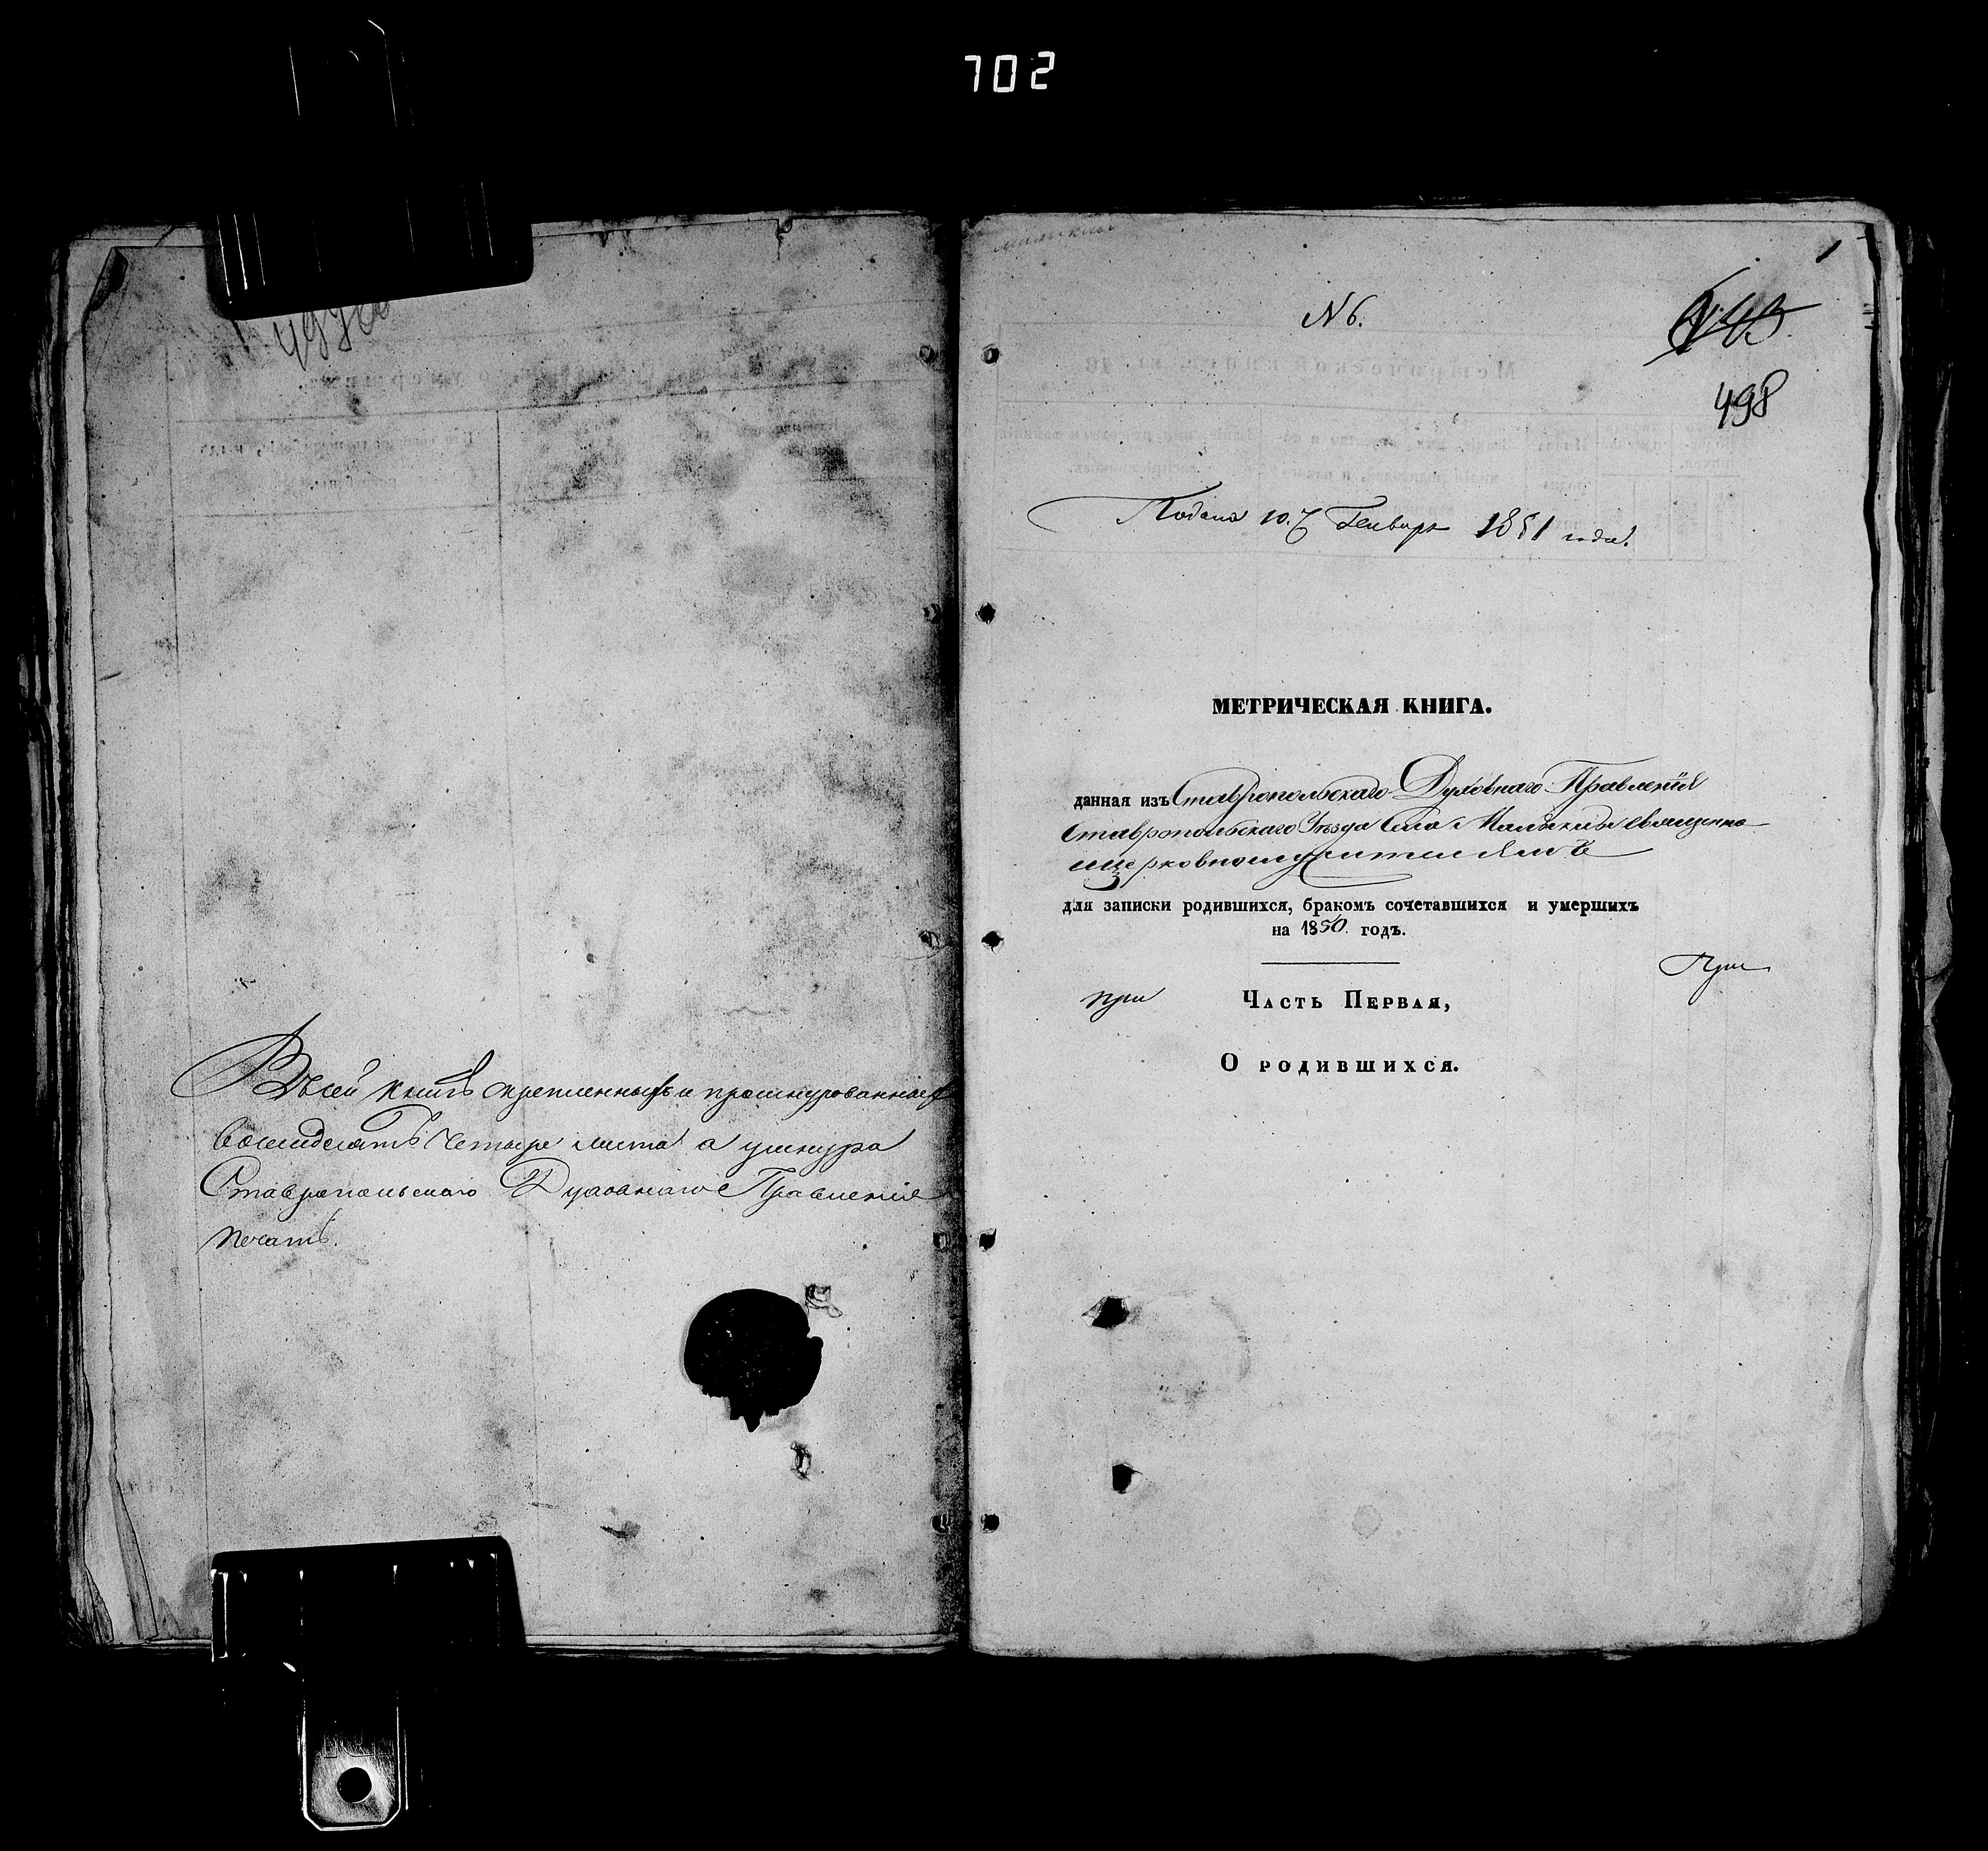 702
498об
Въ сей книгѣ скрепленныхъ и прошнурованныхъ
восемдесятъ четыре листа а у шнура
Ставропольскаго Духовнаго Правленія
печать.
малыклы
1
N 6.
N 43
498
Подана 10. Генваря 1851 года.
МЕТРИЧЕСКАЯ КНИГА.
данная изъ Ставропольскаго Духовнаго Правленія
Ставропольскаго Уѣзда Села Малыклы священно
церковнослужителямъ
для записки родившихся, бракомъ сочетавшихся и умершихъ
на 1850. годъ.
При
при ЧАСТЬ ПЕРВАЯ,
О РОДИВШИХСЯ.